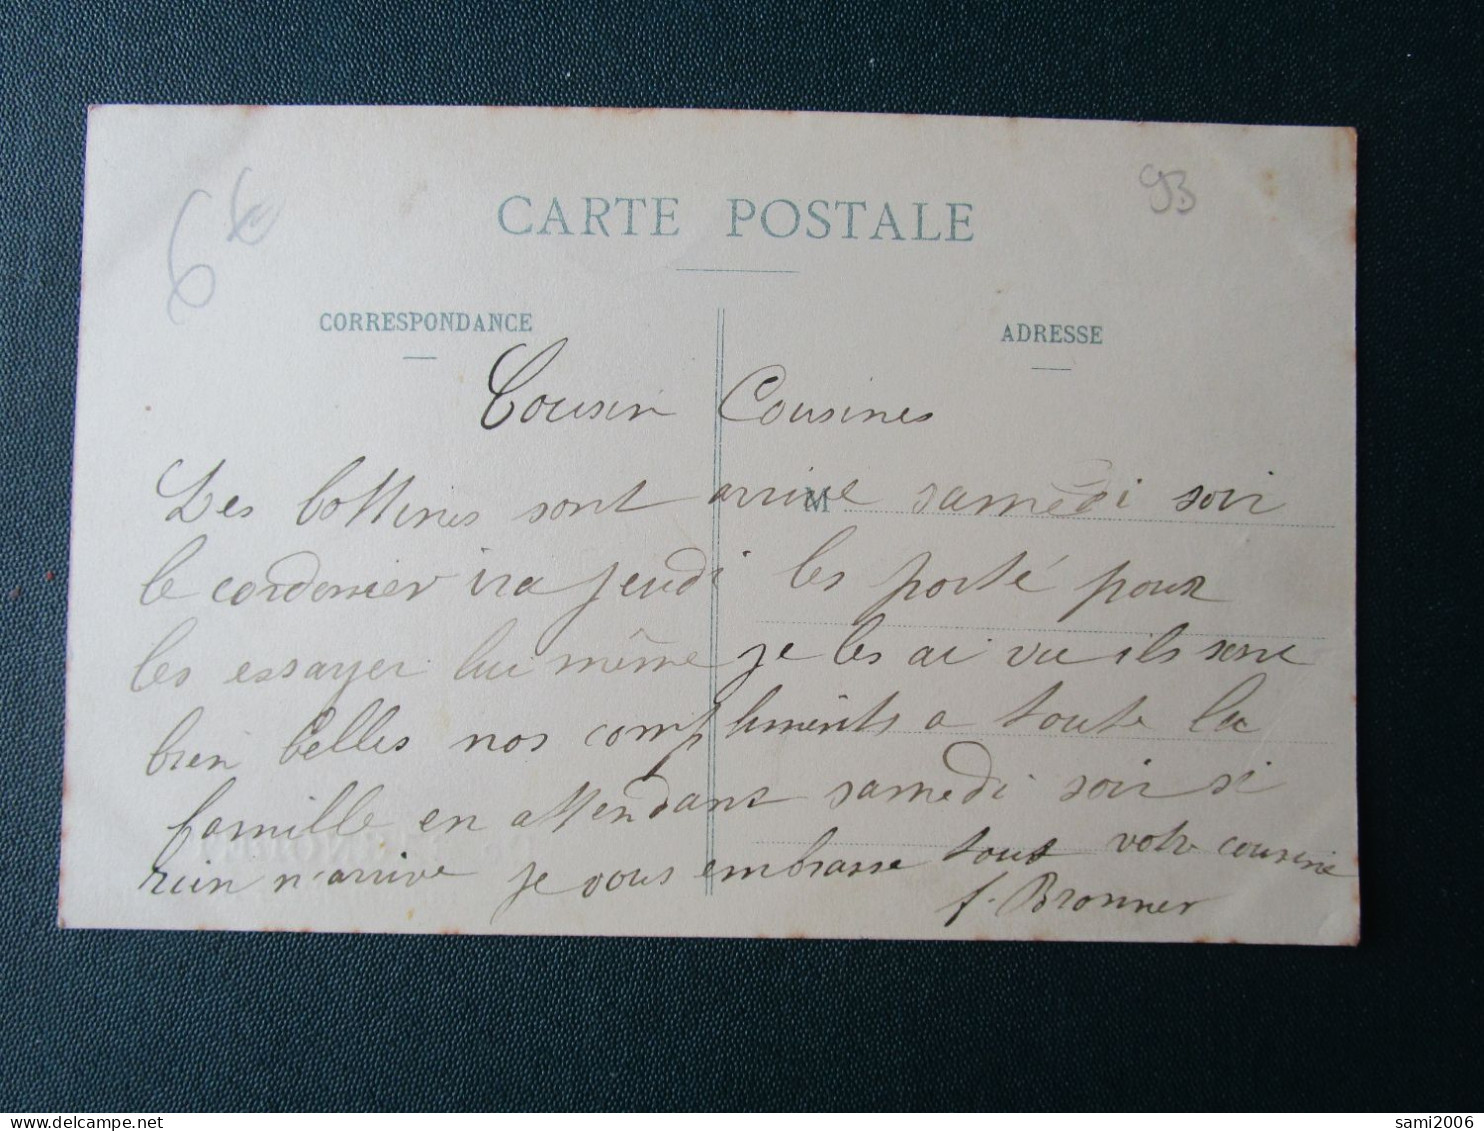 6€
93
CARTE POSTALE
CORRESPONDANCE
ADRESSE
M
Cousin Cousines
Les bottines sont arrive samedi soir
le cordonier ira jeudi les porté pour
les essayer lui même je les ai vu ils sont
bien belles nos compliments a toute la
famille en attendant samedi soir si
rien n'arrive je vous embrasse tous votre cousine
f. Bronner
sami2006